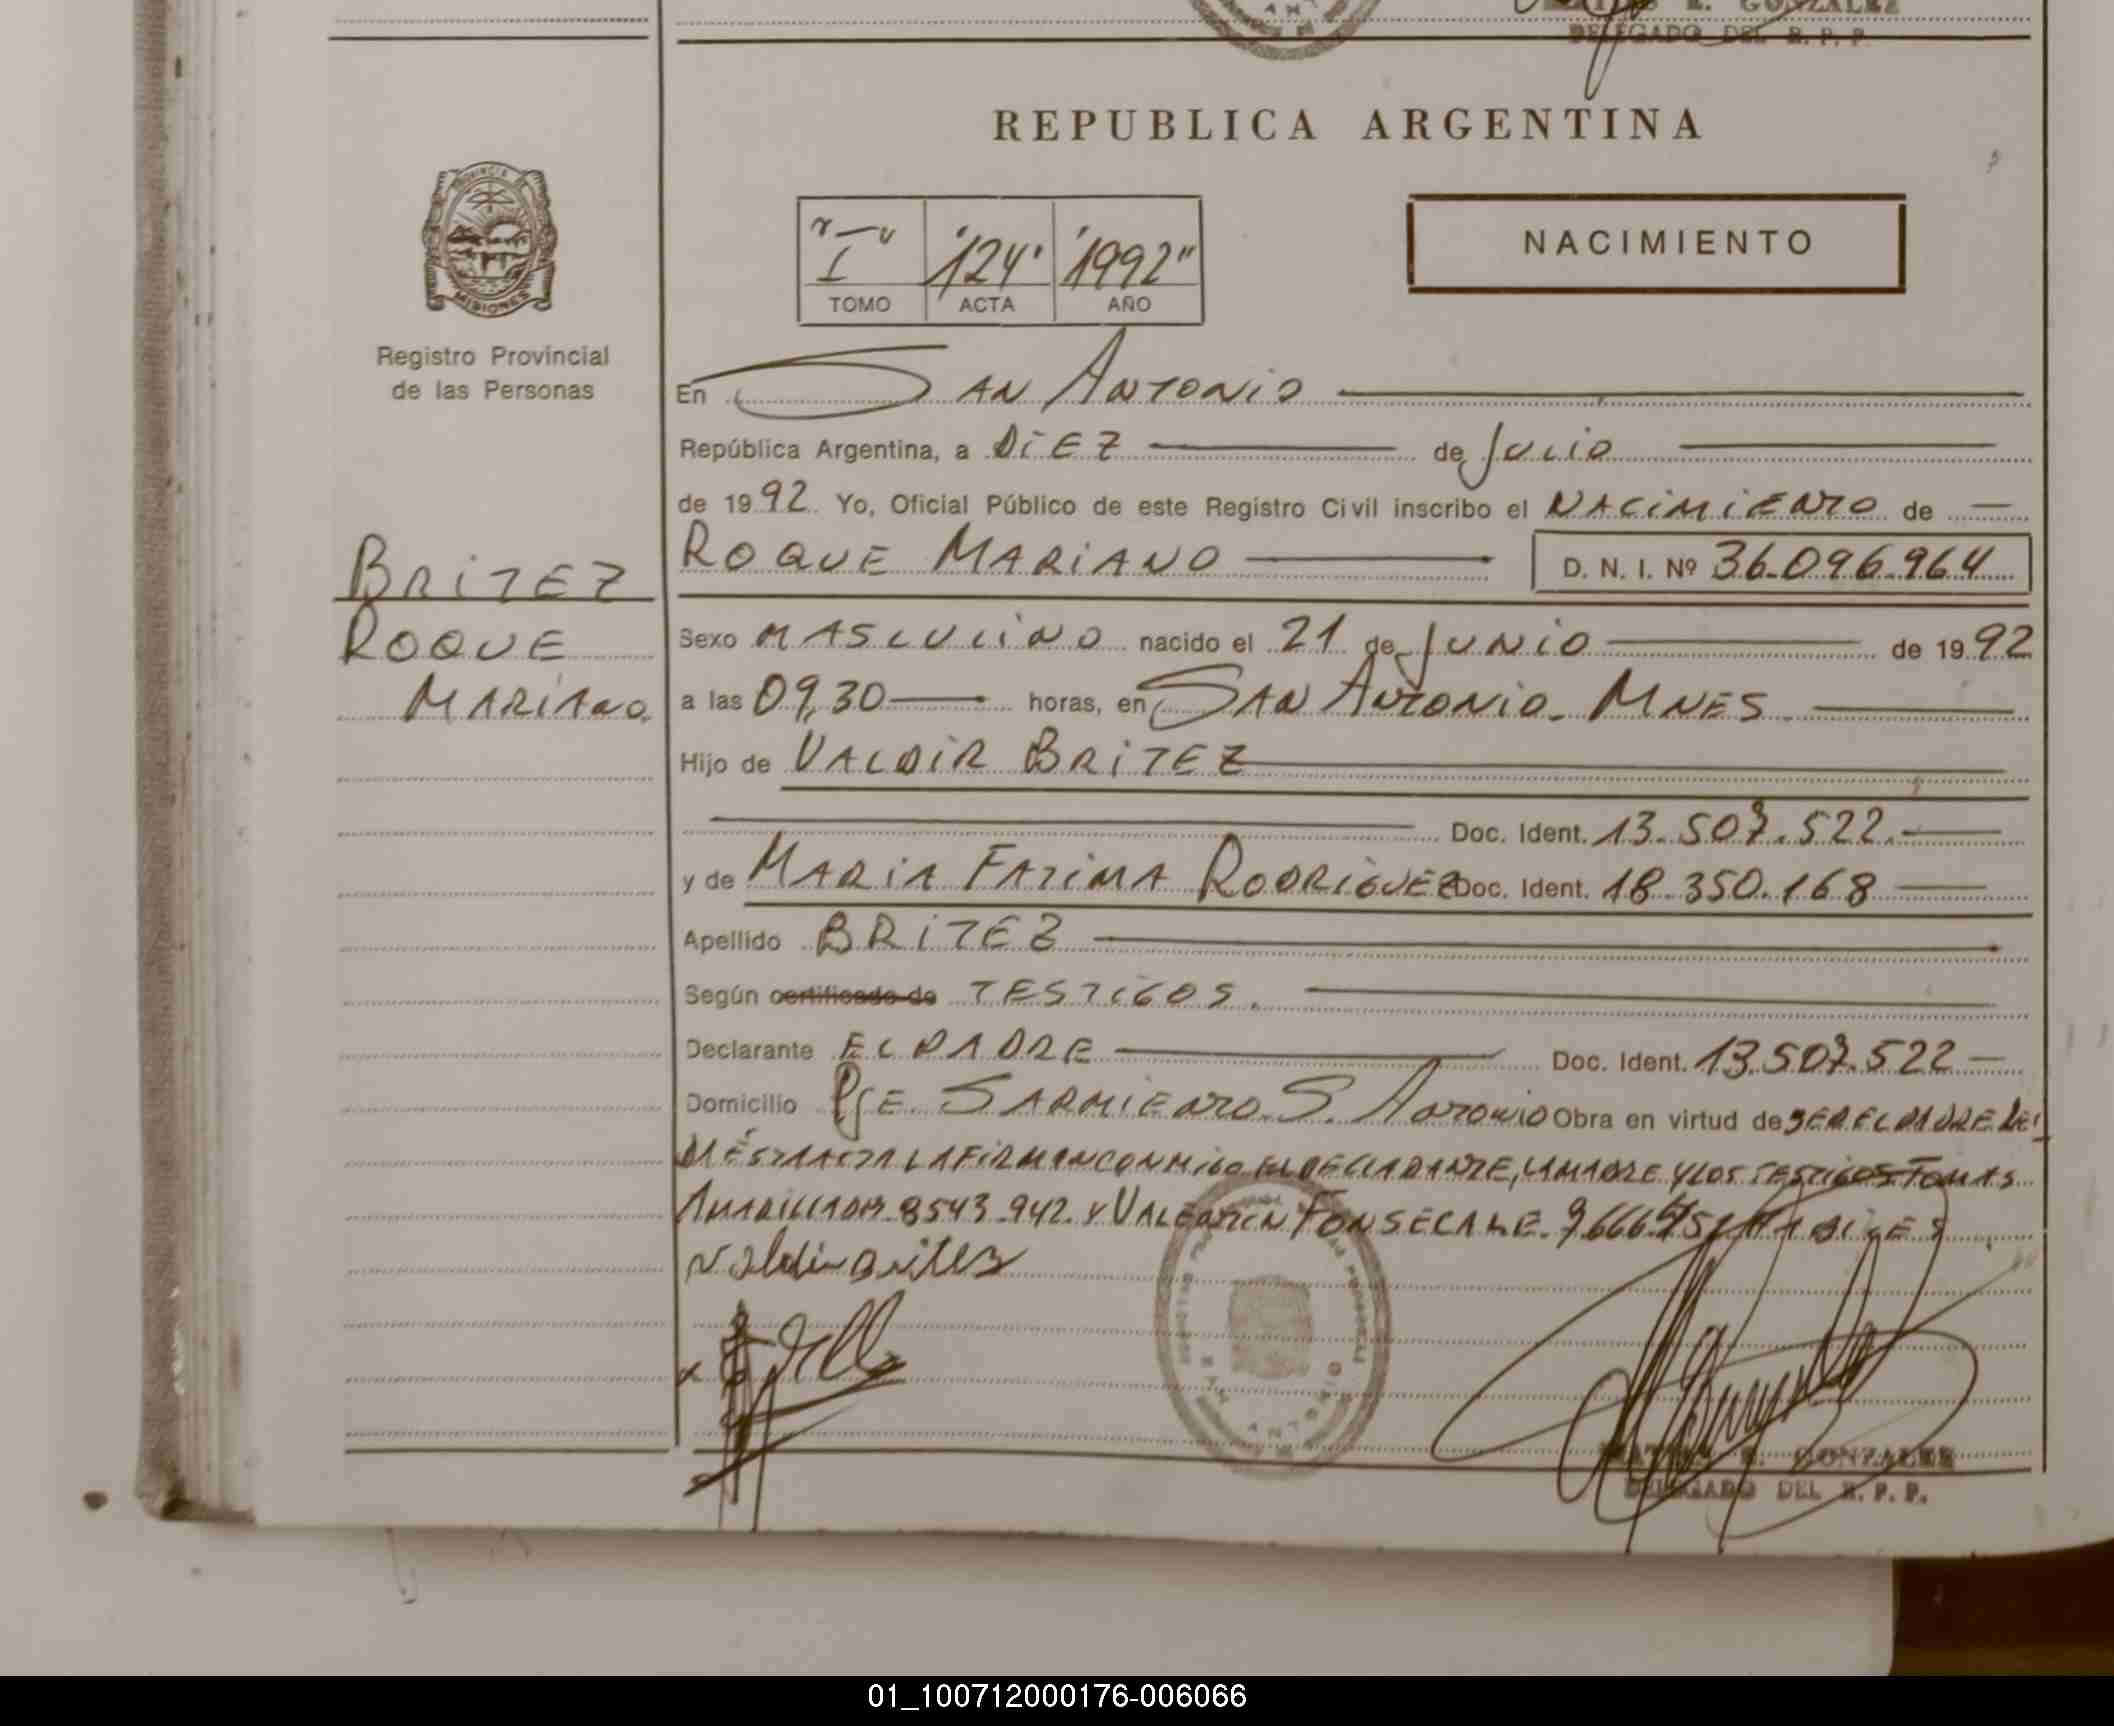 E. GONZALEZ
DELEGADO DEL R. P. P.
REPUBLICA ARGENTINA
PROVINCIA DE
MISIONES
Registro Provincial
de las Personas
"I" "124" "1992"
TOMO ACTA AÑO
NACIMIENTO
En SAN ANTONIO
República Argentina, a DIEZ de JULIO
de 1992. Yo, Oficial Público de este Registro Civil inscribo el NACIMIENTO de
BRITEZ
ROQUE
MARIANO.
ROQUE MARIANO D. N. I. Nº 36.096.964
Sexo MASCULINO nacido el 21 de JUNIO de 1992
a las 09,30 horas, en SAN ANTONIO. MNES
Hijo de VALDIR BRITEZ
Doc. Ident. 13.507.522.
y de MARIA FATIMA RODRIGUEZ Doc. Ident. 18.350.168
Apellido BRITEZ
Según certificado de TESTIGOS.
Declarante EL PADRE Doc. Ident. 13.507.522
Domicilio Pje. SARMIENTO. S. ANTONIO Obra en virtud de SER EL PADRE LEI
DA ÉSTA ACTA LA FIRMAN CONMIGO EL DECLARANTE, LA MADRE Y LOS TESTIGOS TOMAS
AMARILLA 8543.942. Y VALENTIN FONSECA
Valdir Britez
SAN ANTONIO
E. GONZALEZ
DELEGADO DEL R. P. P.
01_100712000176-006066